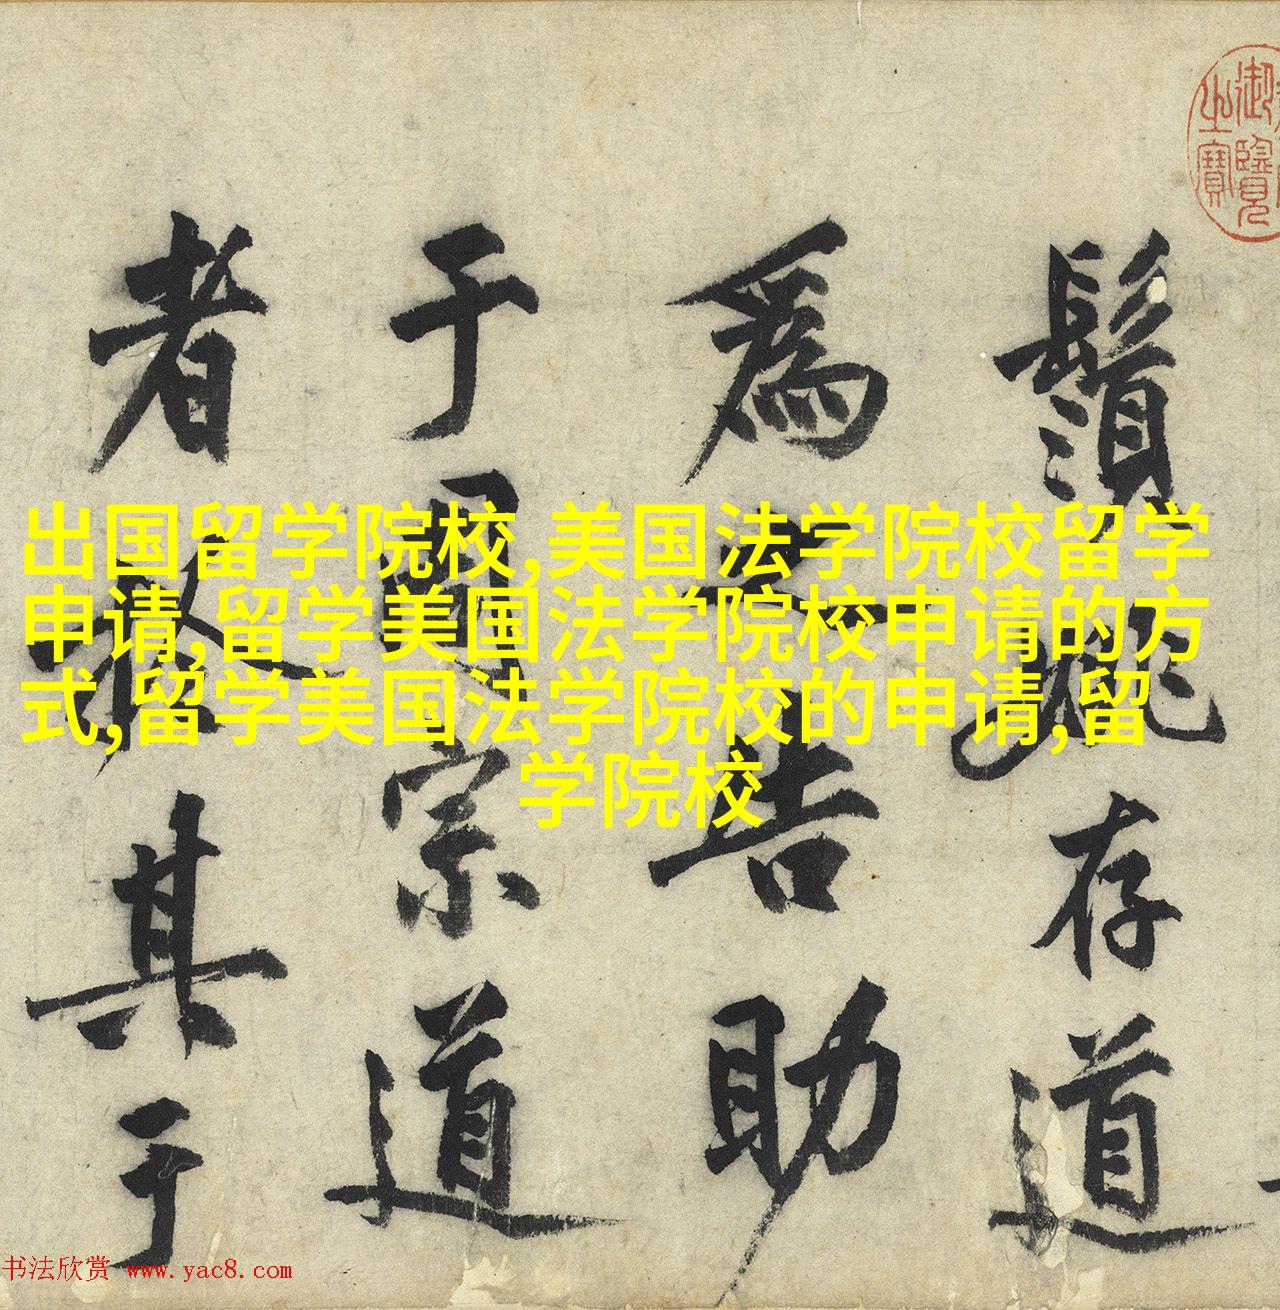 御覽
之寶
鬚姚存道
為之告助
于周宗道
者於其于
出国留学院校,美国法学院校留学
申请,留学美国法学院校申请的方
式,留学美国法学院校的申请,留
学院校
书法欣赏 www.yac8.com